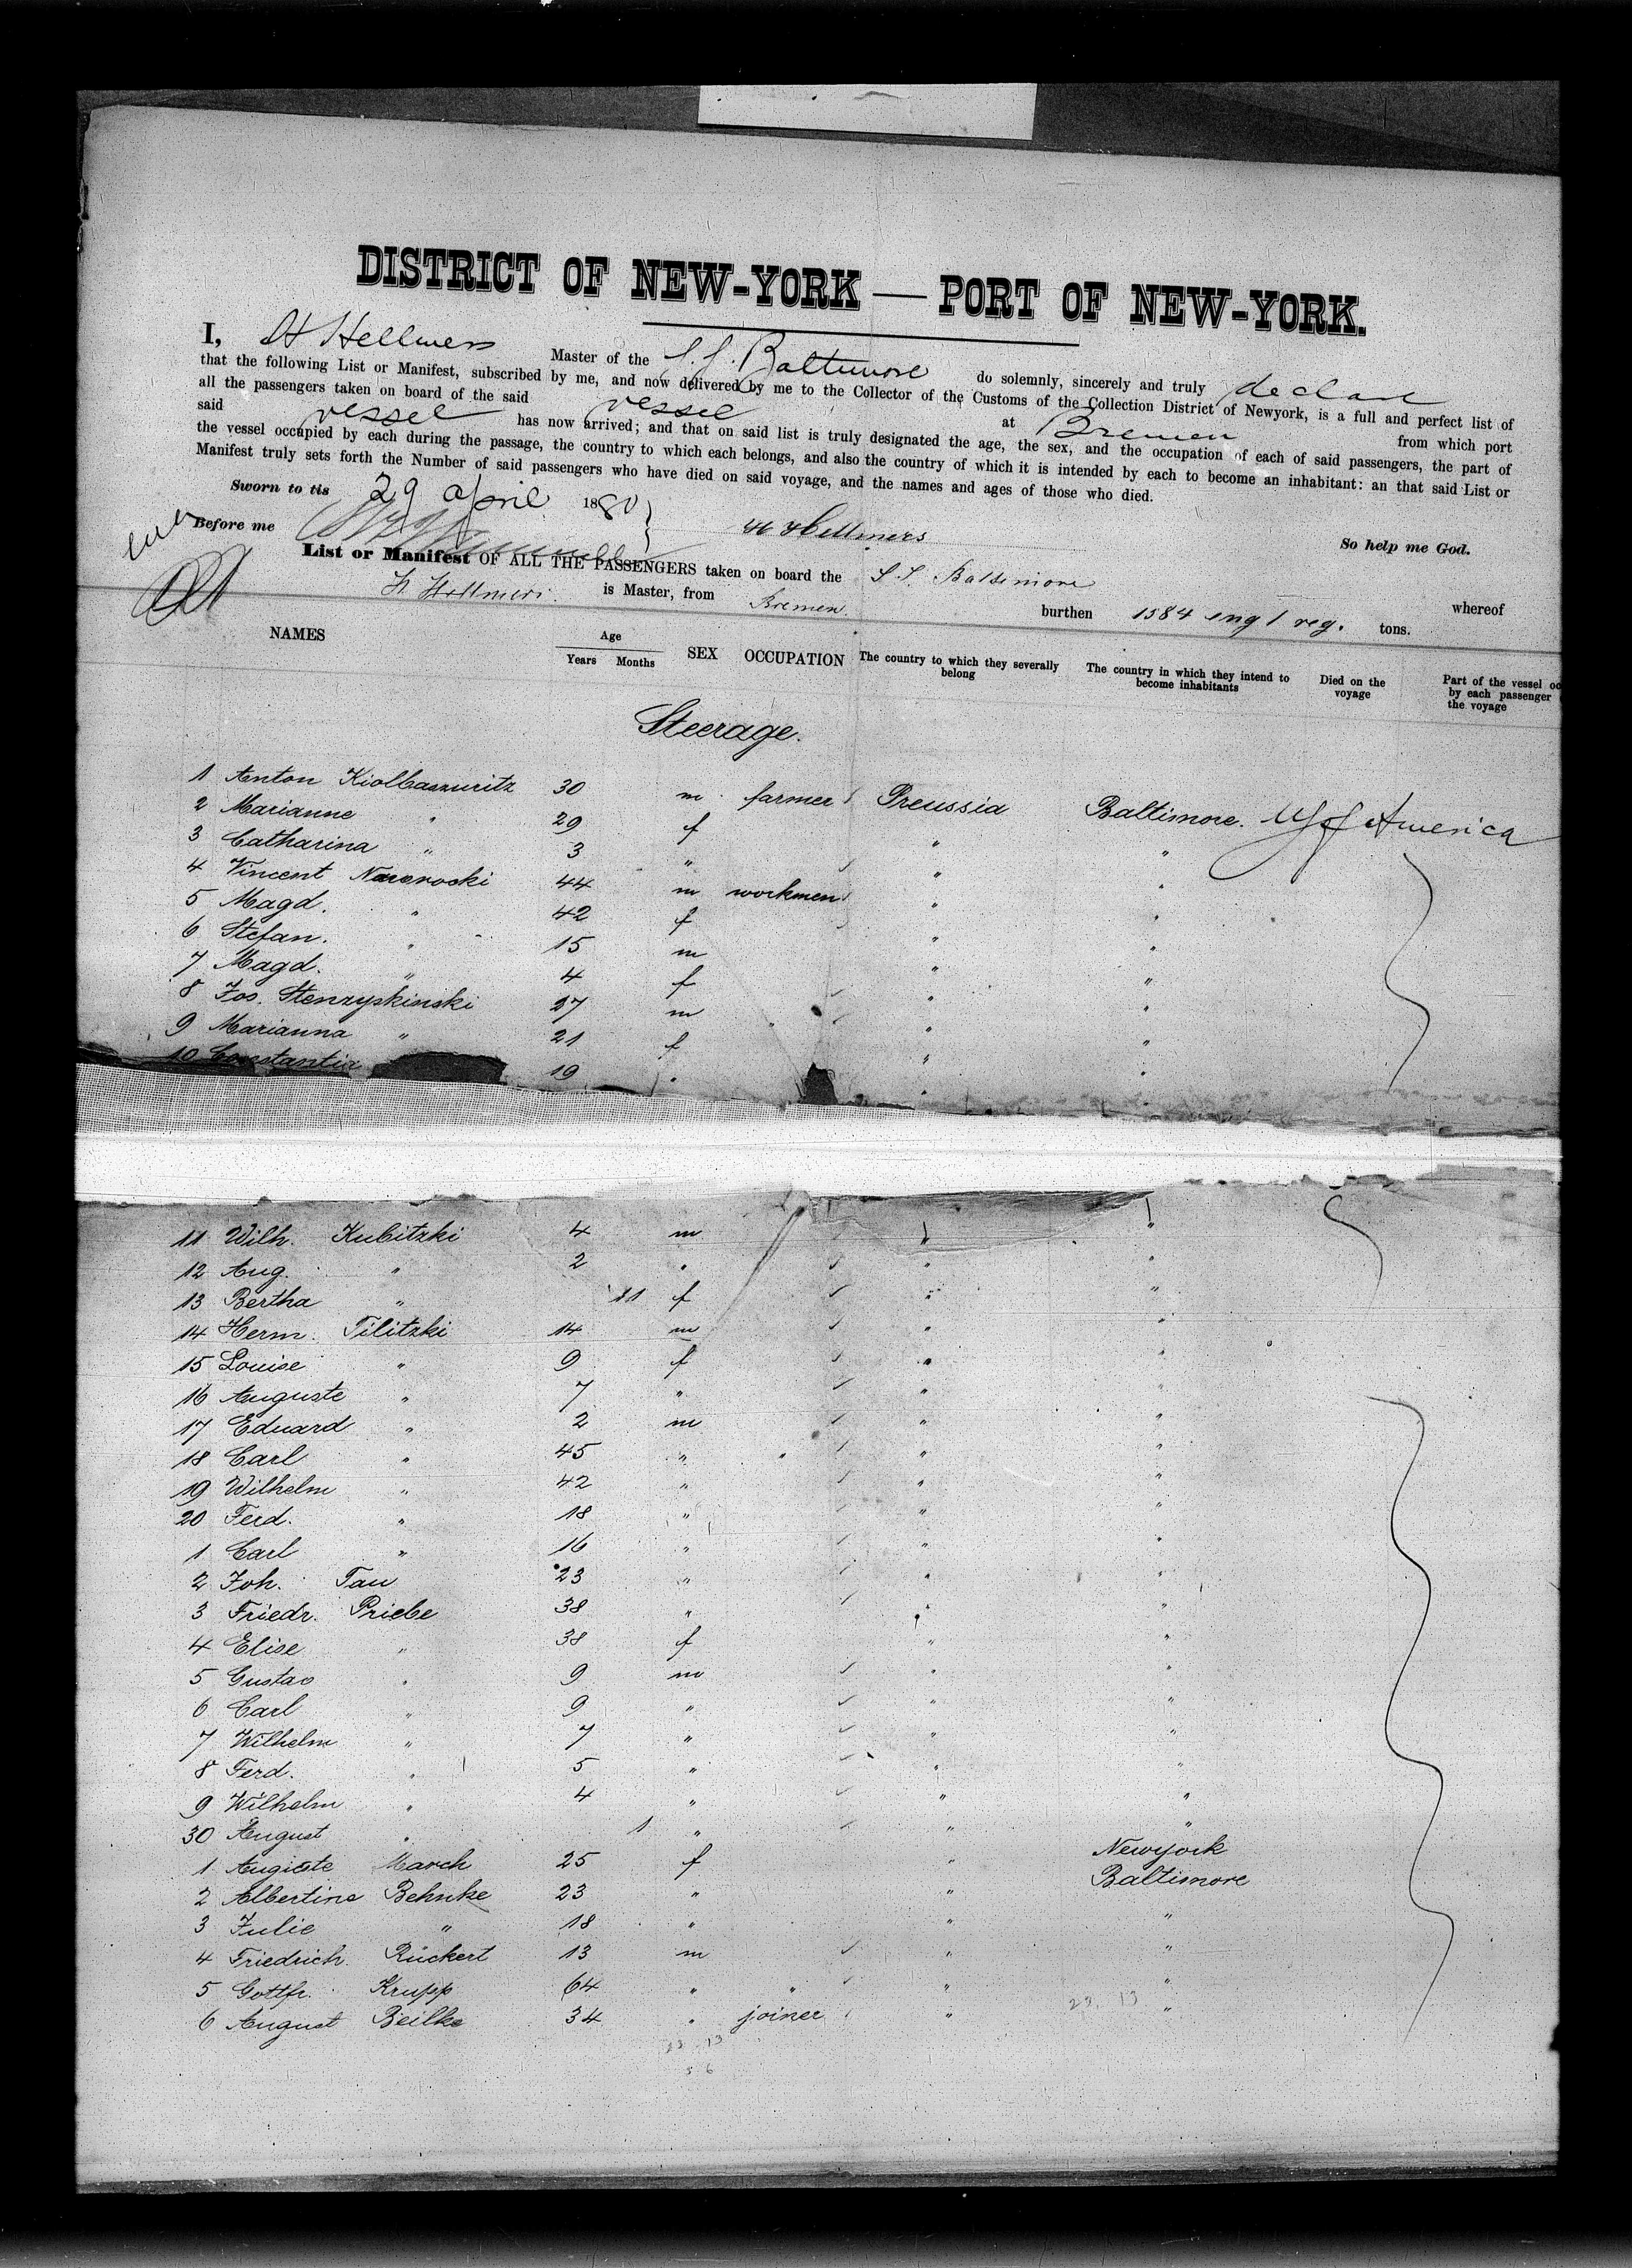 DISTRICT OF NEW-YORK — PORT OF NEW-YORK.
I, H Hellmers Master of the S.S. Baltimore do solemnly, sincerely and truly declare
that the following List or Manifest, subscribed by me, and now delivered by me to the Collector of the Customs of the Collection District of Newyork, is a full and perfect list of
all the passengers taken on board of the said vessel at Bremen from which port
said vessel has now arrived; and that on said list is truly designated the age, the sex, and the occupation of each of said passengers, the part of
the vessel occupied by each during the passage, the country to which each belongs, and also the country of which it is intended by each to become an inhabitant: an that said List or
Manifest truly sets forth the Number of said passengers who have died on said voyage, and the names and ages of those who died.
Sworn to tis 29 April 1880
So help me God.
Before me H Hellmers
List or Manifest OF ALL THE PASSENGERS taken on board the S.S. Baltimore whereof
H. Hellmers. is Master, from Bremen. burthen 1584 engl reg. tons.
NAMES Age Years Months SEX OCCUPATION The country to which they severally belong The country in which they intend to become inhabitants Died on the voyage Part of the vessel by each passenger the voyage
Steerage.
1 Anton Kiolbaszuritz 30 m. farmer Preussia Baltimore. US of America
2 Marianne " 29 f " "
3 Catharina " 3 " " "
4 Vincent 44 m workmen " "
5 Magd. " 42 f " "
6 Stefan. " 15 m " "
7 Magd. " 4 f " "
8 Jos. Stenzyskinski 27 m " " "
9 Marianna " 21 f " "
10 Constantia 19 " " "
11 Wilh. Kubitzki 4 m " "
12 Aug. " 2 " " "
13 Bertha " 11 f " "
14 Herm. Tilitzki 14 m " "
15 Louise " 9 f " "
16 Auguste " 7 " " "
17 Eduard " 2 m " "
18 Carl " 45 " " " "
19 Wilhelm " 42 " " "
20 Ferd. " 18 " " "
1 Carl " 16 " " "
2 Joh. Tau 23 " " "
3 Friedr. Priebe 38 " " "
4 Elise " 38 f " "
5 Gustav " 9 m " "
6 Carl " 9 " " "
7 Wilhelm " 7 " " "
8 Ferd. " 5 " " "
9 Wilhelm " 4 " " "
30 August " 1 " " "
1 Auguste March 25 f " Newyork
2 Albertine Behnke 23 " " Baltimore
3 Julie " 18 " " "
4 Friedrich Rückert 13 m " "
5 Gottfr. Krupp 64 " " " "
6 August Beilke 34 " joiner " "
23 13
23 13
3 6